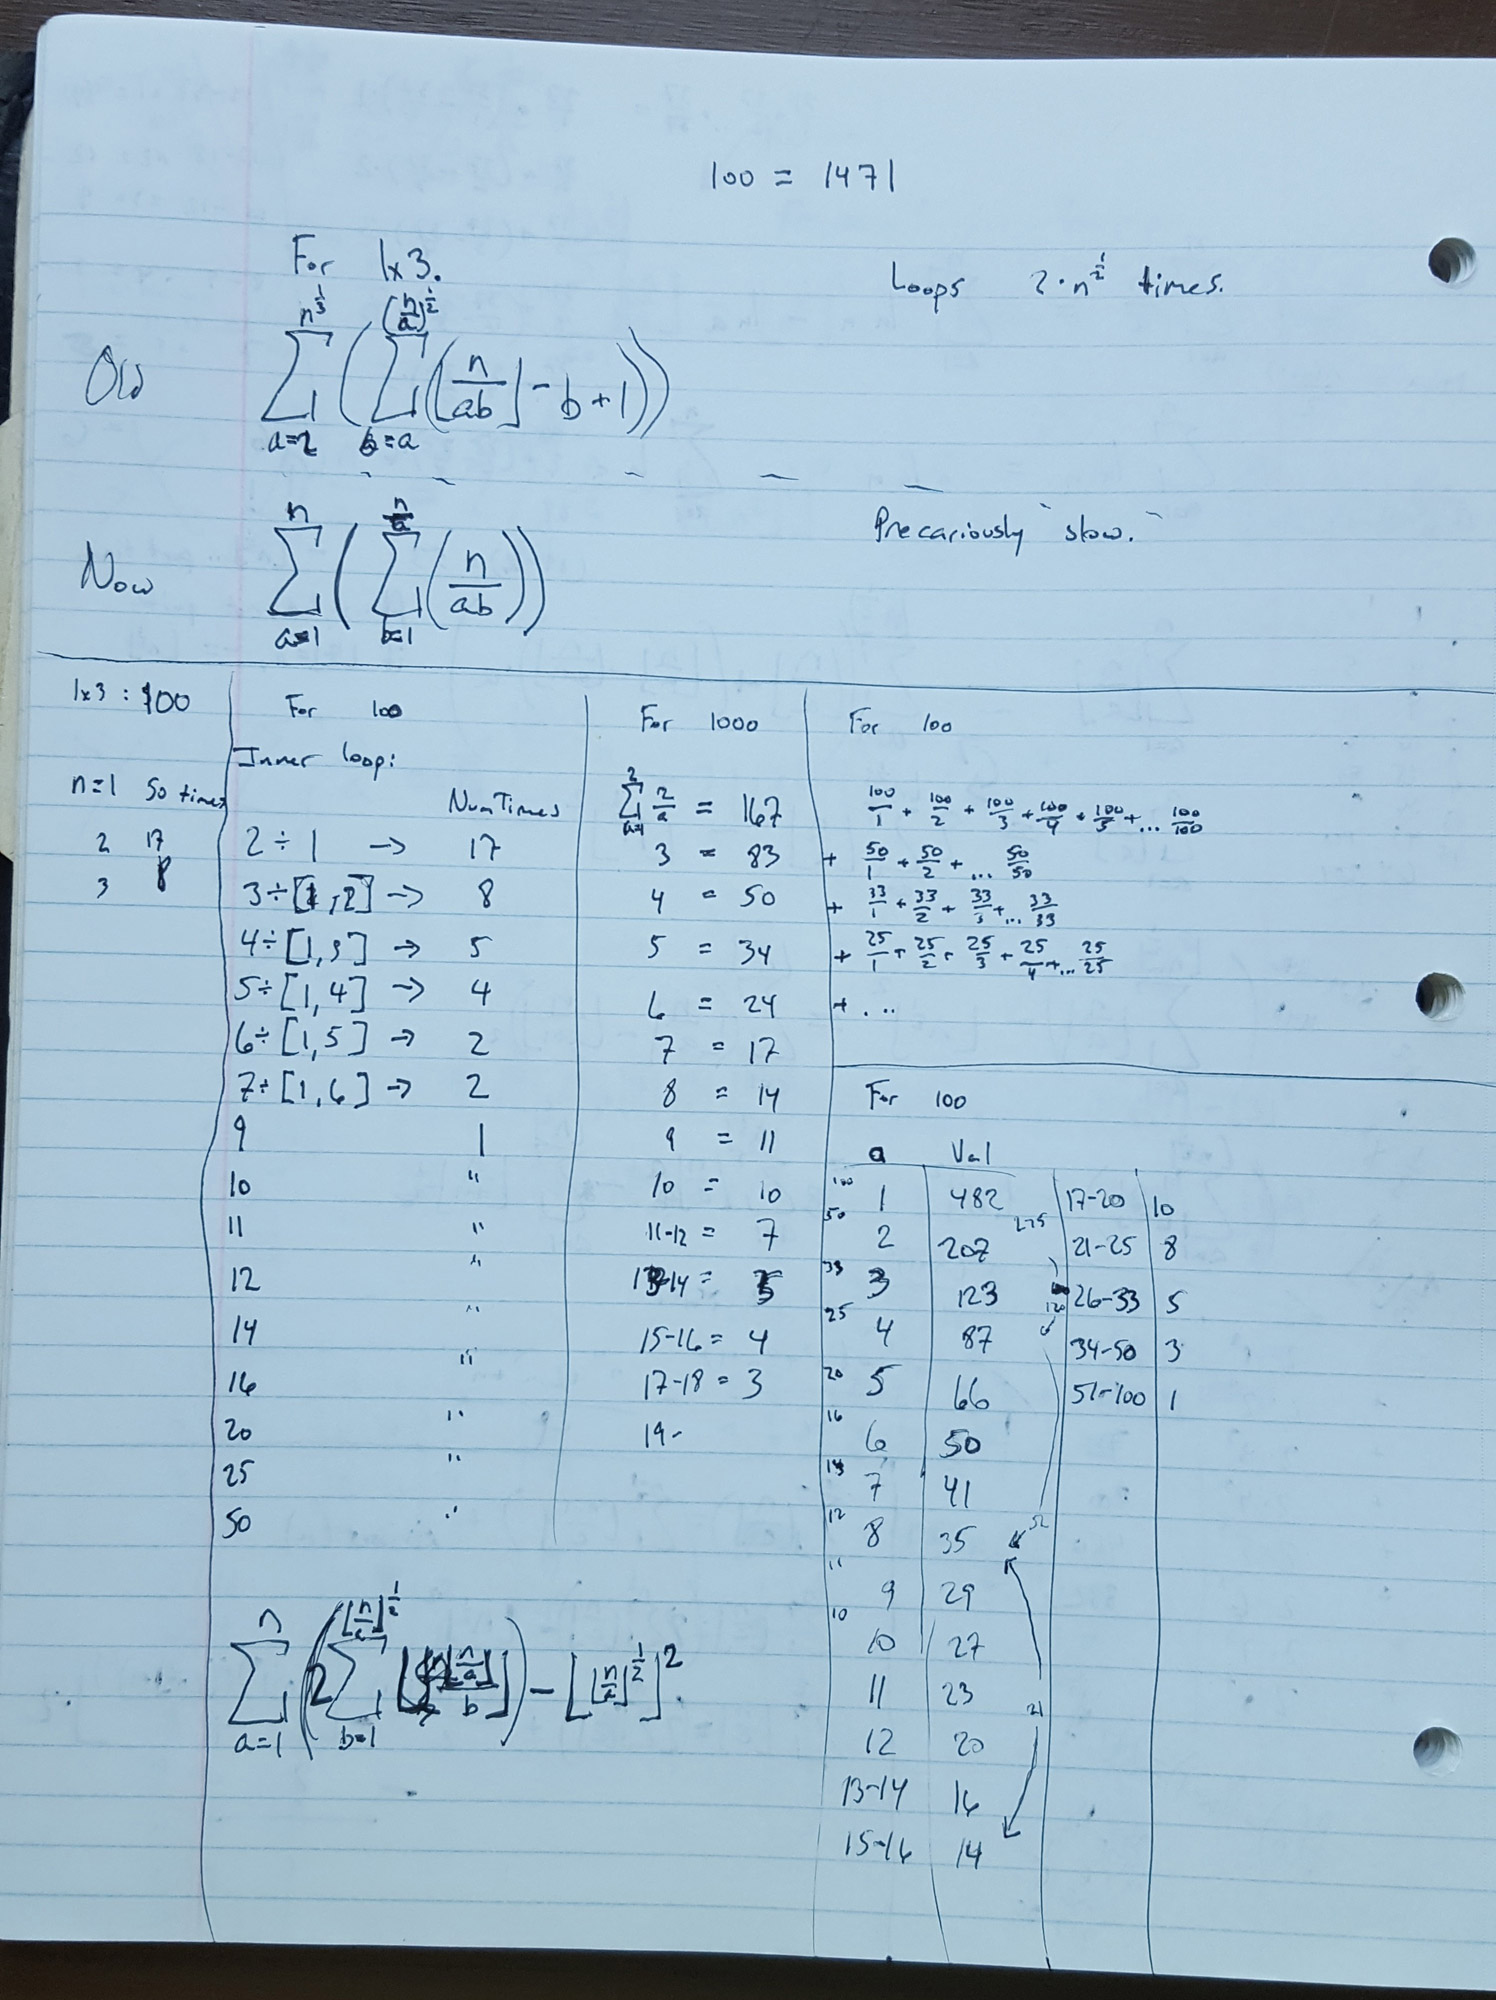 100 = 1471
For 1x3.
Loops 2·n^(1/2) times.
Old ∑_{a=2}^{n^(1/3)} ( ∑_{b=a}^{(n/a)^(1/2)} (⌊n/ab⌋ - b + 1))
Precariously slow.
Now ∑_{a=1}^{n} ( ∑_{b=1}^{n/a} (n/ab))
1x3 : 100
n=1 50 times
2 17
3 8
For 100
Inner loop:
NumTimes
2 ÷ 1 → 17
3 ÷ [1, 2] → 8
4 ÷ [1, 3] → 5
5 ÷ [1, 4] → 4
6 ÷ [1, 5] → 2
7 ÷ [1, 6] → 2
9 1
10 "
11 "
12 "
14 "
16 "
20 "
25 "
50 "
For 1000
∑_{a=1}^{2} 2/a = 167
3 = 83
4 = 50
5 = 34
6 = 24
7 = 17
8 = 14
9 = 11
10 = 10
11-12 = 7
13-14 = 5
15-16 = 4
17-18 = 3
19-
For 100
100/1 + 100/2 + 100/3 + 100/4 + 100/5 + ... 100/100
+ 50/1 + 50/2 + ... 50/50
+ 33/1 + 33/2 + 33/3 + ... 33/33
+ 25/1 + 25/2 + 25/3 + 25/4 + ... 25/25
+ ...
For 100
a Val
100 1 482 275
50 2 207
33 3 123 120
25 4 87
20 5 66
16 6 50
14 7 41
12 8 35 52
11 9 29
10 10 27
11 23 21
12 20
13-14 16
15-16 14
17-20 10
21-25 8
26-33 5
34-50 3
51-100 1
∑_{a=1}^{n} (2 ∑_{b=1}^{⌊n/a⌋^(1/2)} ⌊⌊n/a⌋/b⌋) - ⌊⌊n/a⌋^(1/2)⌋^2